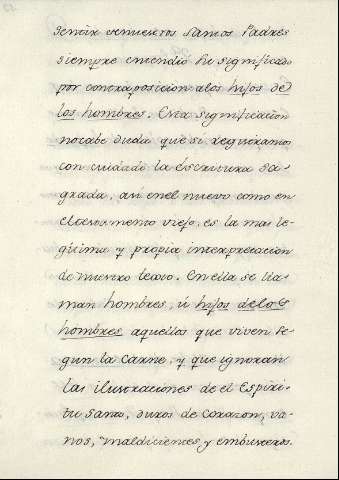 sentir denuestros Santos Padres
siempre entendió su significado
por contraposicion alos hijos de
los hombres. Esta significacion
nocabe duda que si registramos
con cuidado la Escritura Sa-
grada, asi enel nuevo como en
eltestamento viejo, es la mas le-
gitima y propia interpretacion
de nuestro texto. En ella se lla-
man hombres, ú hijos delos
hombres aquellos que viven se-
gun la carne, y que ignoran
las ilustraciones de el Espiri-
tu Santo, duros de corazon, va-
nos, maldicientes y embusteros.